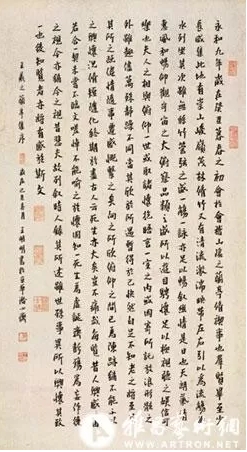 永和九年歲在癸丑暮春之初會於會稽山陰之蘭亭脩禊事也羣賢畢至少
長咸集此地有崇山峻嶺茂林脩竹又有清流激湍映帶左右引以為流觴曲
水列坐其次雖無絲竹管弦之盛一觴一詠亦足以暢叙幽情是日也天朗氣清
惠風和暢仰觀宇宙之大俯察品類之盛所以遊目騁懷足以極視聽之娛信可
樂也夫人之相與俯仰一世或取諸懷抱晤言一室之內或因寄所託放浪形骸之
外雖趣舍萬殊靜躁不同當其欣於所遇暫得於己快然自足不知老之將至及
其所之既倦情隨事遷感慨係之矣向之所欣俛仰之間已為陳跡猶不能不以
之興懷況脩短隨化終期於盡古人云死生亦大矣豈不痛哉每覽昔人興感之由
若合一契未嘗不臨文嗟悼不能喻之於懷固知一死生為虛誕齊彭殤為妄作後
之視今亦猶今之視昔悲夫故列叙時人錄其所述雖世殊事異所以興懷其致
一也後之覽者亦將有感於斯文
王羲之蘭亭集序
雅昌艺术网
WWW.ARTRON.NET